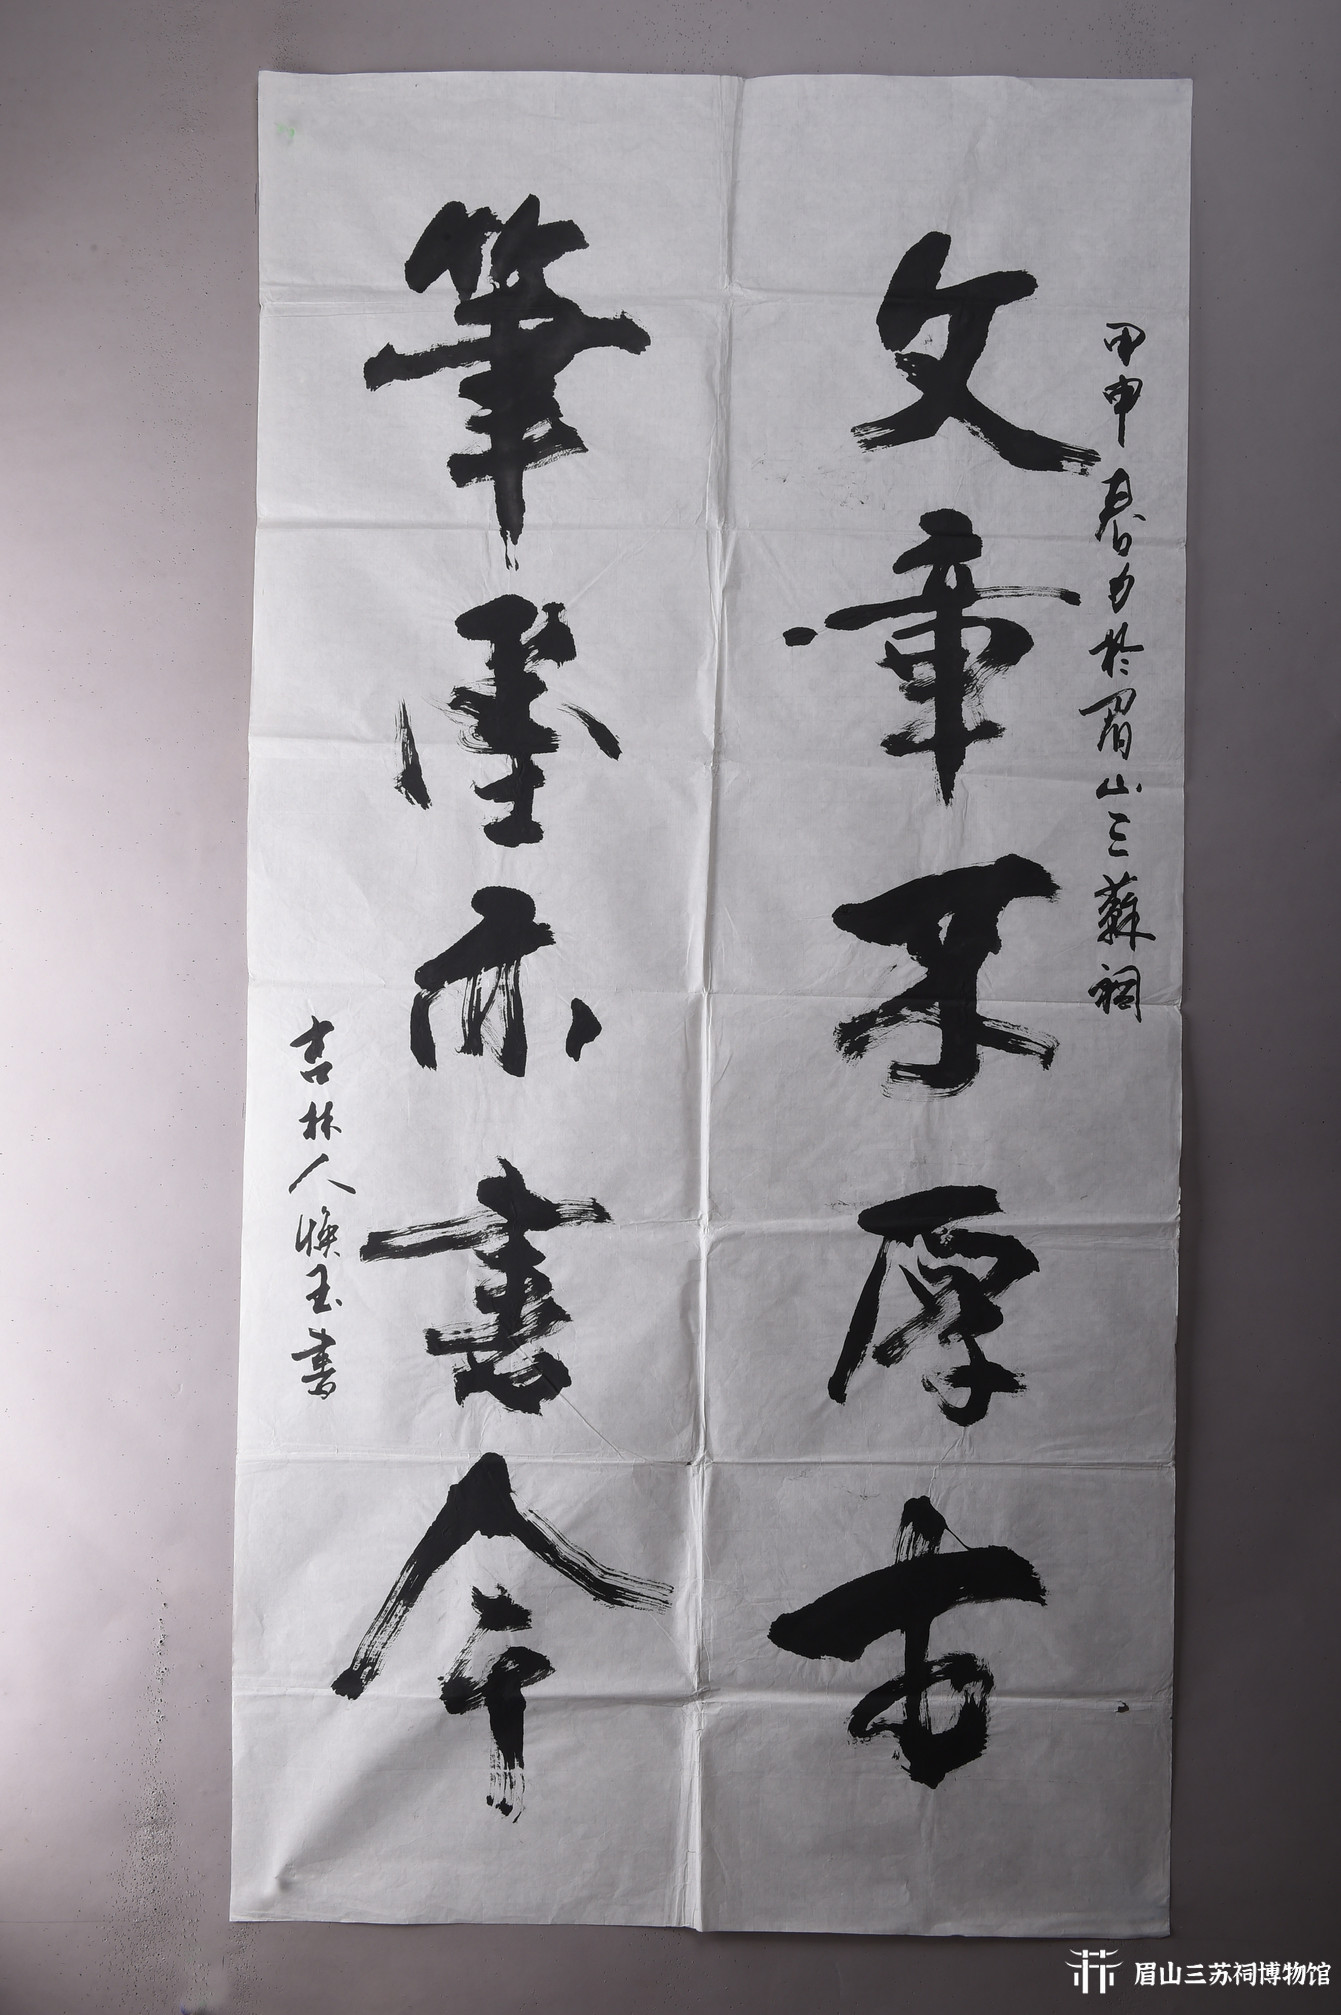 甲申春力於眉山三蘇祠
文章不厚古
筆墨亦書今
吉林人煥玉書
眉山三苏祠博物馆